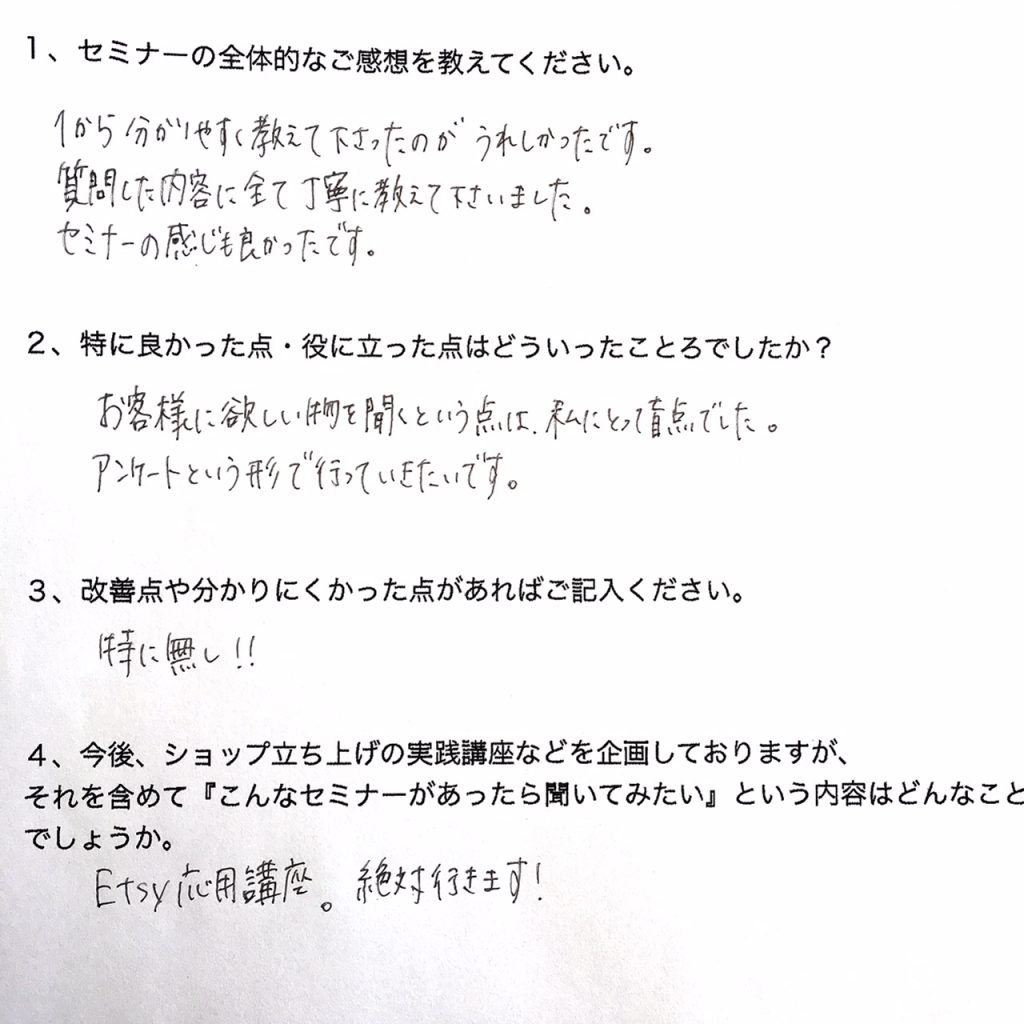 1、セミナーの全体的なご感想を教えてください。
1から分かりやすく教えて下さったのがうれしかったです。
質問した内容に全て丁寧に教えて下さいました。
セミナーの感じも良かったです。
2、特に良かった点・役に立った点はどういったことろでしたか？
お客様に欲しい物を聞くという点は、私にとって盲点でした。
アンケートという形で行っていきたいです。
3、改善点や分かりにくかった点があればご記入ください。
特に無し!!
4、今後、ショップ立ち上げの実践講座などを企画しておりますが、
それを含めて『こんなセミナーがあったら聞いてみたい』という内容はどんなこと
でしょうか。
Etsy応用講座。絶対行きます!